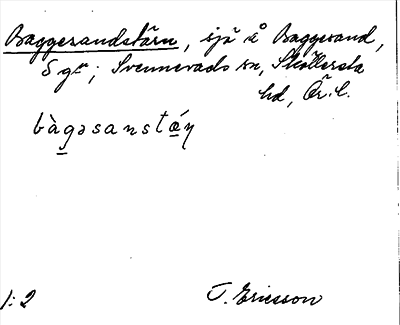 Baggesandstärn, sjö å Baggesand,
Sgn; Svennevads sn, Sköllersta
hd, Ör. l.
bàgəsanstǽ̱ṇ
1:2 T. Ericsson